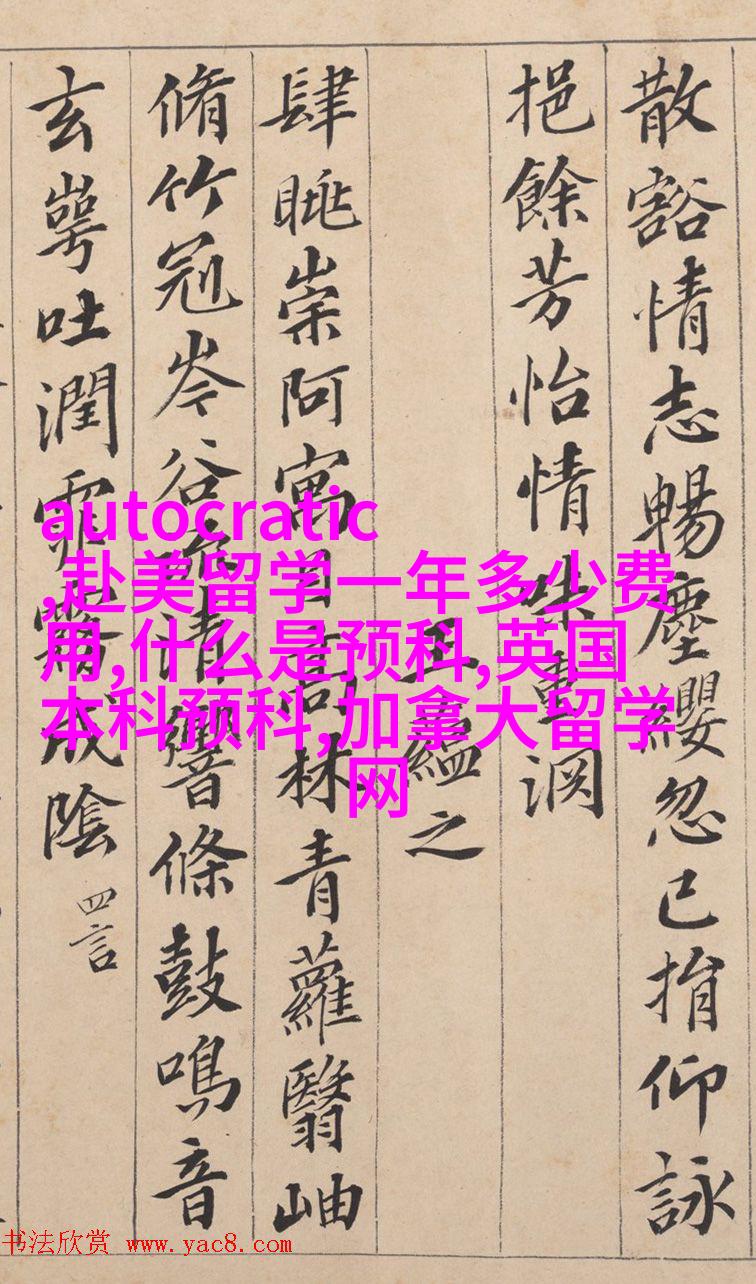 散豁情志暢塵纓忽已捐仰詠
挹餘芳怡情味重淵
王蘊之
肆眺崇阿寓目高林青蘿翳岫
脩竹冠岑谷流清響條鼓鳴音
玄崿吐潤霏霧成陰 四言
autocratic
,赴美留学一年多少费
用,什么是预科,英国
本科预科,加拿大留学
网
书法欣赏 www.yac8.com